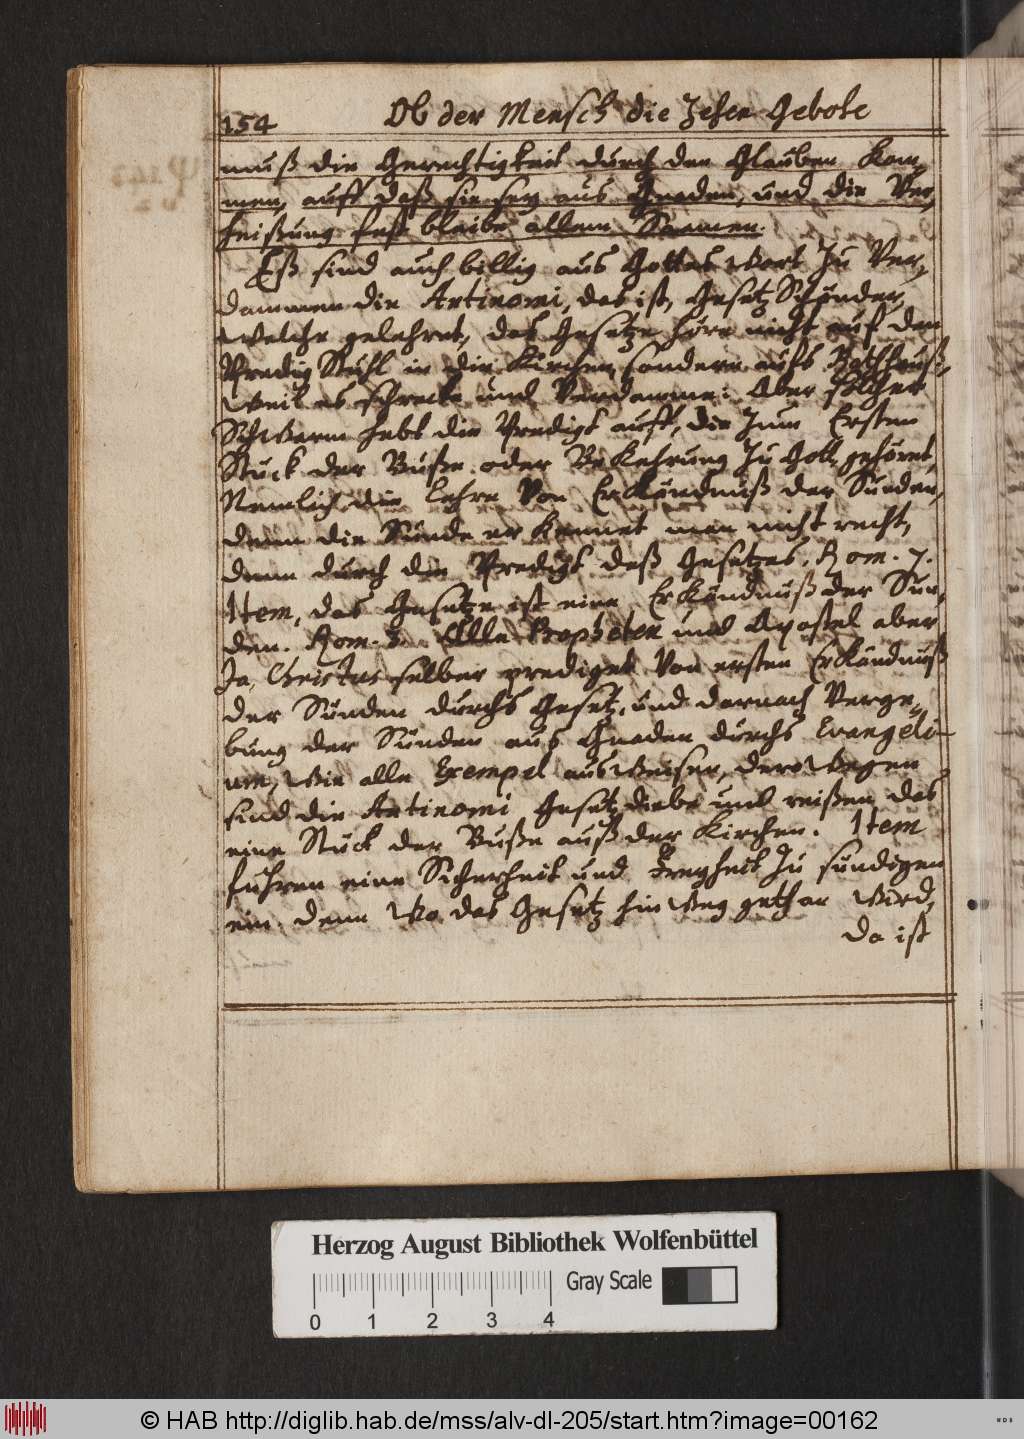 154
Ob der Mensch die Zehen Gebote
muß die Gerechtigkeit durch den Glauben kom,
men, auff daß sie sey aus Gnaden, und die Ver,
heißung fest bleibe allem Saamen.
Eß sind auch billig aus Gottes Wort zu Ver,
dammen die Antinomi, das ist, Gesetz Schänder,
Welche gelehret, das Gesetze höre nicht auf den
Predig Stuhl in die Kirchen, sondern aufs Rathhauß,
Weil es schrecke und Verdamme: Aber solcher
Schwarm hebt die Predigt auff, die zum Ersten
Stuck der Buße oder Bekehrung zu Gott gehöret,
Nemlich die Lehre Von Erkändnuß der Sünden,
denn die Sünde erkennet man nicht recht,
denn durch die Predigt deß Gesetzes. Rom. 7.
Item, das Gesetze ist eine Erkändnuß der Sün,
den. Rom. 3. Alle Propheten und Apostel aber
Ja, Christus selber prediget Von ersten Erkändnuß
der Sünden durchs Gesetz, und darnach Verge,
bung der Sünden aus Gnaden durchs Evangeli-
um, Wie alle Exempel ausweisen, derowegen
sind die Antinomi Gesetz diebe und reißen das
eine Stück der Buße auß der Kirchen. Item
führen eine Sicherheit und Freyheit zu sündigen
ein. denn Wo das Gesetz hinweg gethan Wird,
da ist
Herzog August Bibliothek Wolfenbüttel
Gray Scale
0 1 2 3 4
© HAB http://diglib.hab.de/mss/alv-dl-205/start.htm?image=00162